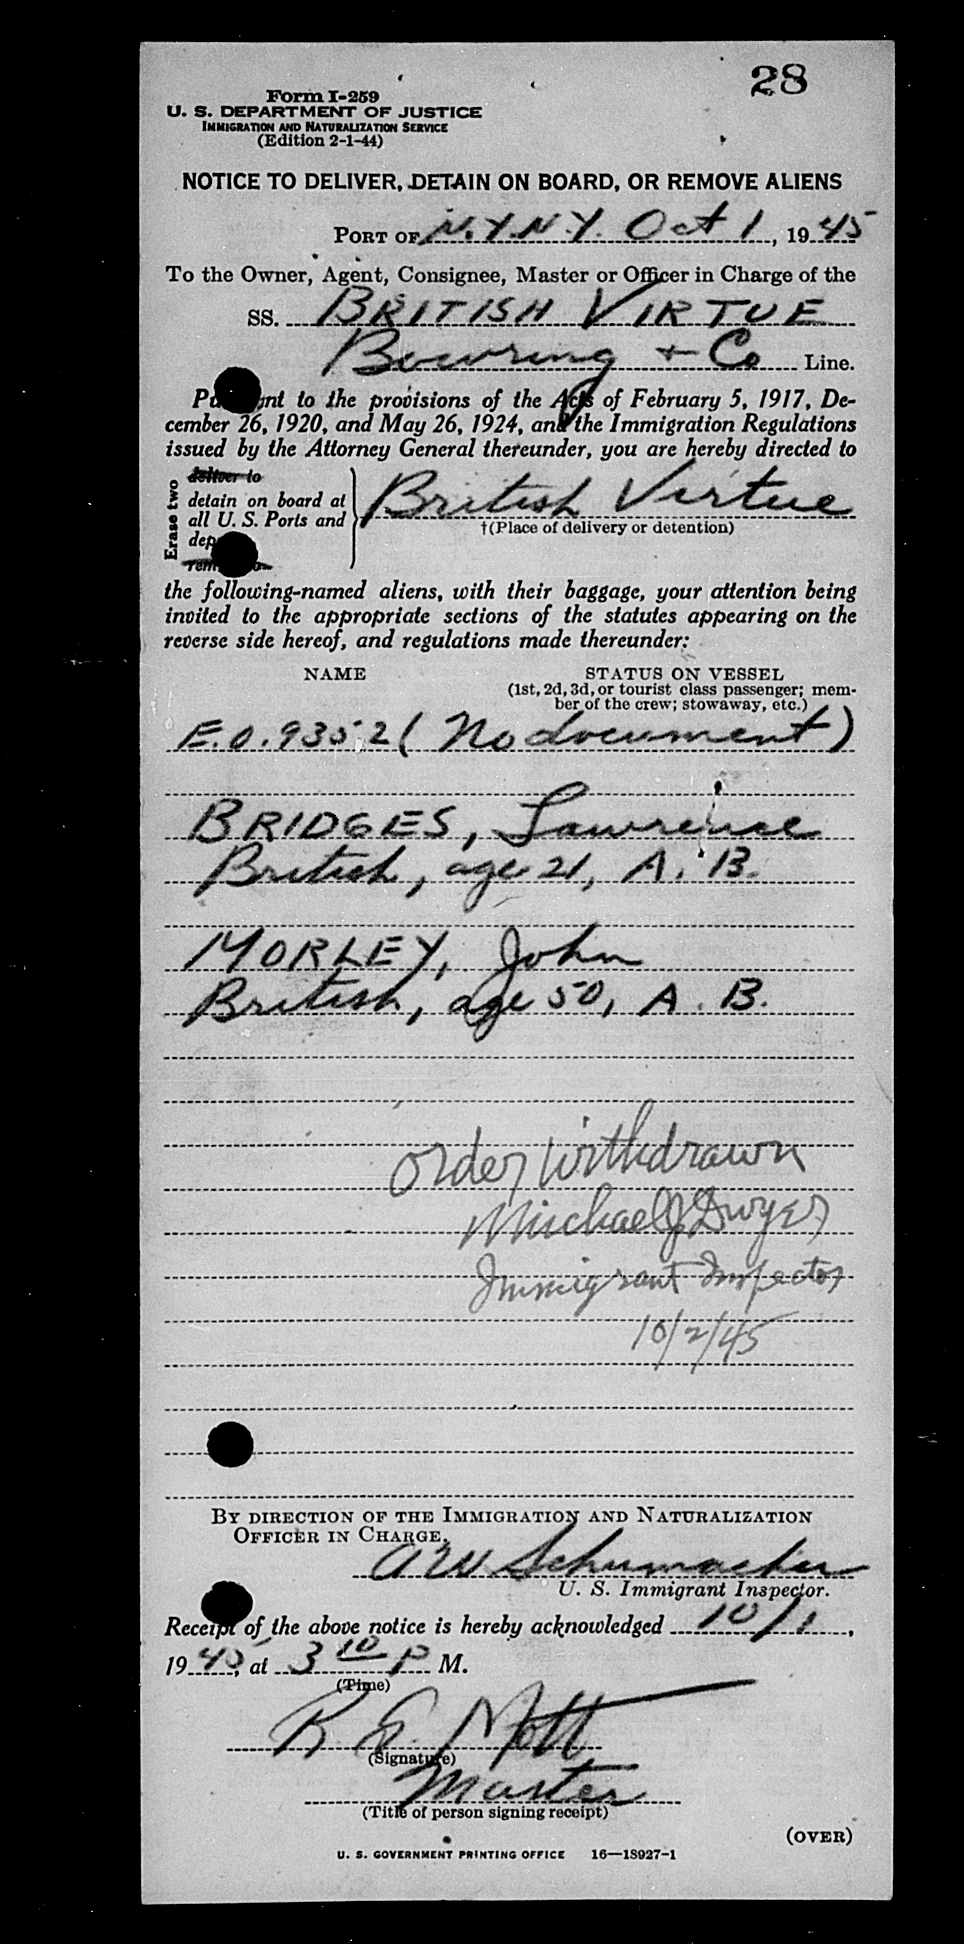 28
Form I-259
U. S. DEPARTMENT OF JUSTICE
IMMIGRATION AND NATURALIZATION SERVICE
(Edition 2-1-44)
NOTICE TO DELIVER, DETAIN ON BOARD, OR REMOVE ALIENS
PORT OF N.Y.N.Y. Oct 1, 1945
To the Owner, Agent, Consignee, Master or Officer in Charge of the
SS. BRITISH VIRTUE
Bowring + Co Line.
Pursuant to the provisions of the Acts of February 5, 1917, De-
cember 26, 1920, and May 26, 1924, and the Immigration Regulations
issued by the Attorney General thereunder, you are hereby directed to
Erase two
deliver to
detain on board at
all U. S. Ports and
British Virtue
†(Place of delivery or detention)
the following-named aliens, with their baggage, your attention being
invited to the appropriate sections of the statutes appearing on the
reverse side hereof, and regulations made thereunder:
NAME STATUS ON VESSEL
(1st, 2d, 3d, or tourist class passenger; mem-
ber of the crew; stowaway, etc.)
E.O. 9352 (No document)
BRIDGES, Lawrence
British, age 21, A. B.
MORLEY, John
British, age 50, A. B.
Order Withdrawn
Michael J Dwyer
Immigrant Inspector
10/2/45
BY DIRECTION OF THE IMMIGRATION AND NATURALIZATION
OFFICER IN CHARGE,
A W Schumacher
U. S. Immigrant Inspector.
Receipt of the above notice is hereby acknowledged 10/1,
1945, at 3 10 P M.
(Time)
R. E. Mott
(Signature)
Master
(Title of person signing receipt)
(OVER)
U. S. GOVERNMENT PRINTING OFFICE 16—18927-1